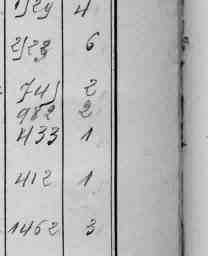 1529 4
2523 6
745 2
982 2
433 1
412 1
1462 3